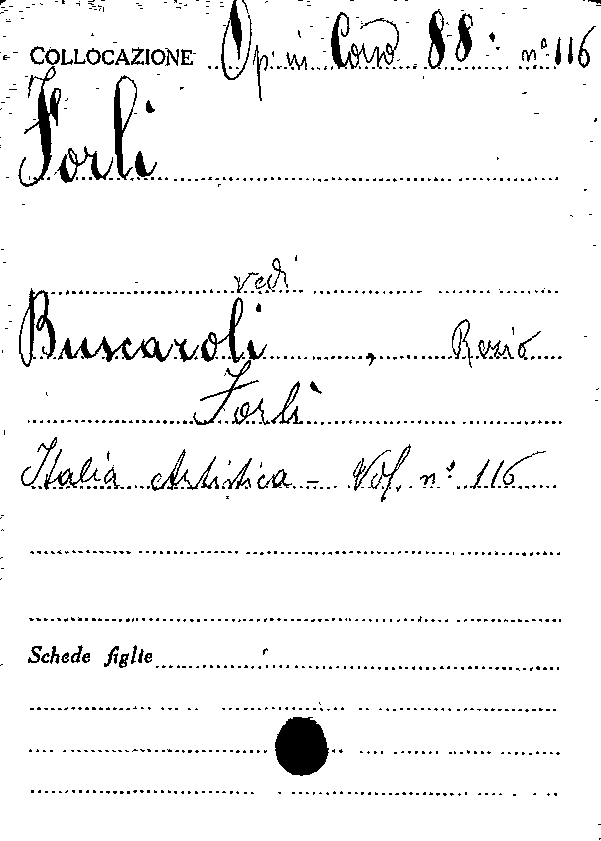 COLLOCAZIONE Op. in Corso 88. n° 116
Forlì
vedi
Buscaroli, Rezio
Forlì
Italia Artistica - Vol. n° 116
Schede figlie